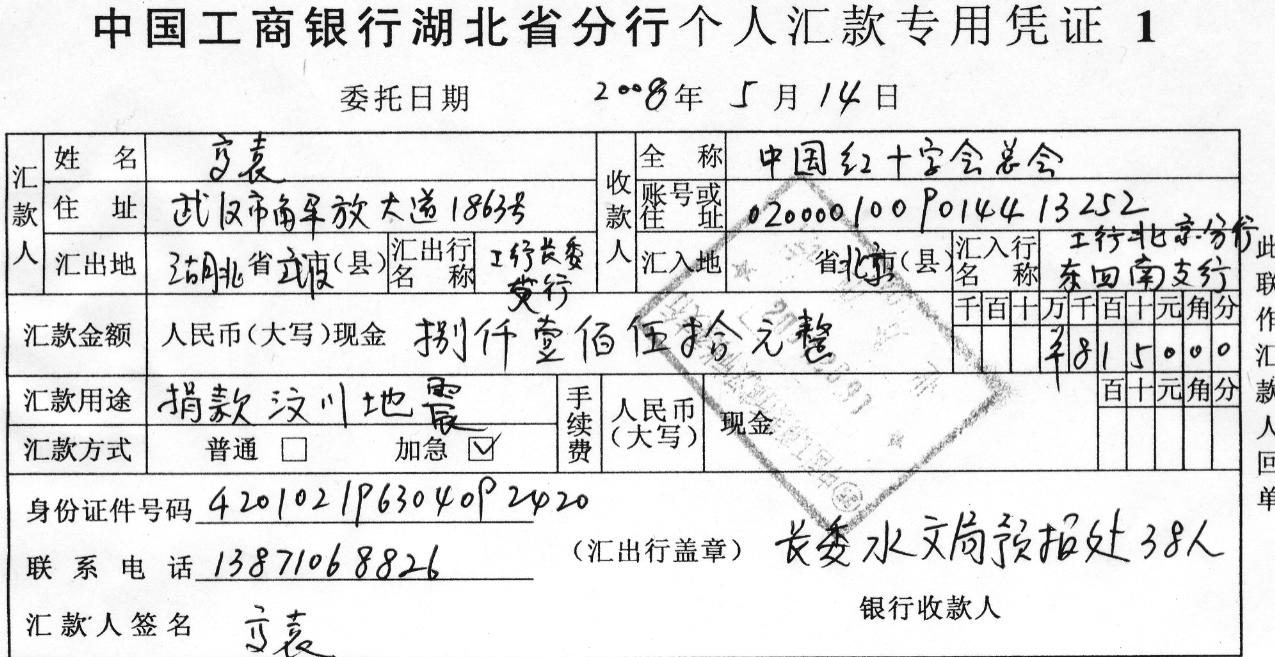 中国工商银行湖北省分行个人汇款专用凭证 1
委托日期 2008年 5月14日
汇款人 姓名 收款人 全称 中国红十字会总会
住址 武汉市解放大道1863号 账号或住址 0200001009014413252
汇出地 湖北省武汉市(县) 汇出行名称 工行长委支行 汇入地 省北京市(县) 汇入行名称 工行北京分行东四南支行
汇款金额 人民币(大写)现金 捌仟壹佰伍拾元整 千百十万千百十元角分 ¥815000
汇款用途 捐款汶川地震 手续费 人民币(大写) 现金 百十元角分
汇款方式 普通 □ 加急 ☑
身份证件号码 420102196304092420
联系电话 13871068826 (汇出行盖章) 长委水文局预报处38人
汇款人签名 银行收款人
此联作汇款人回单